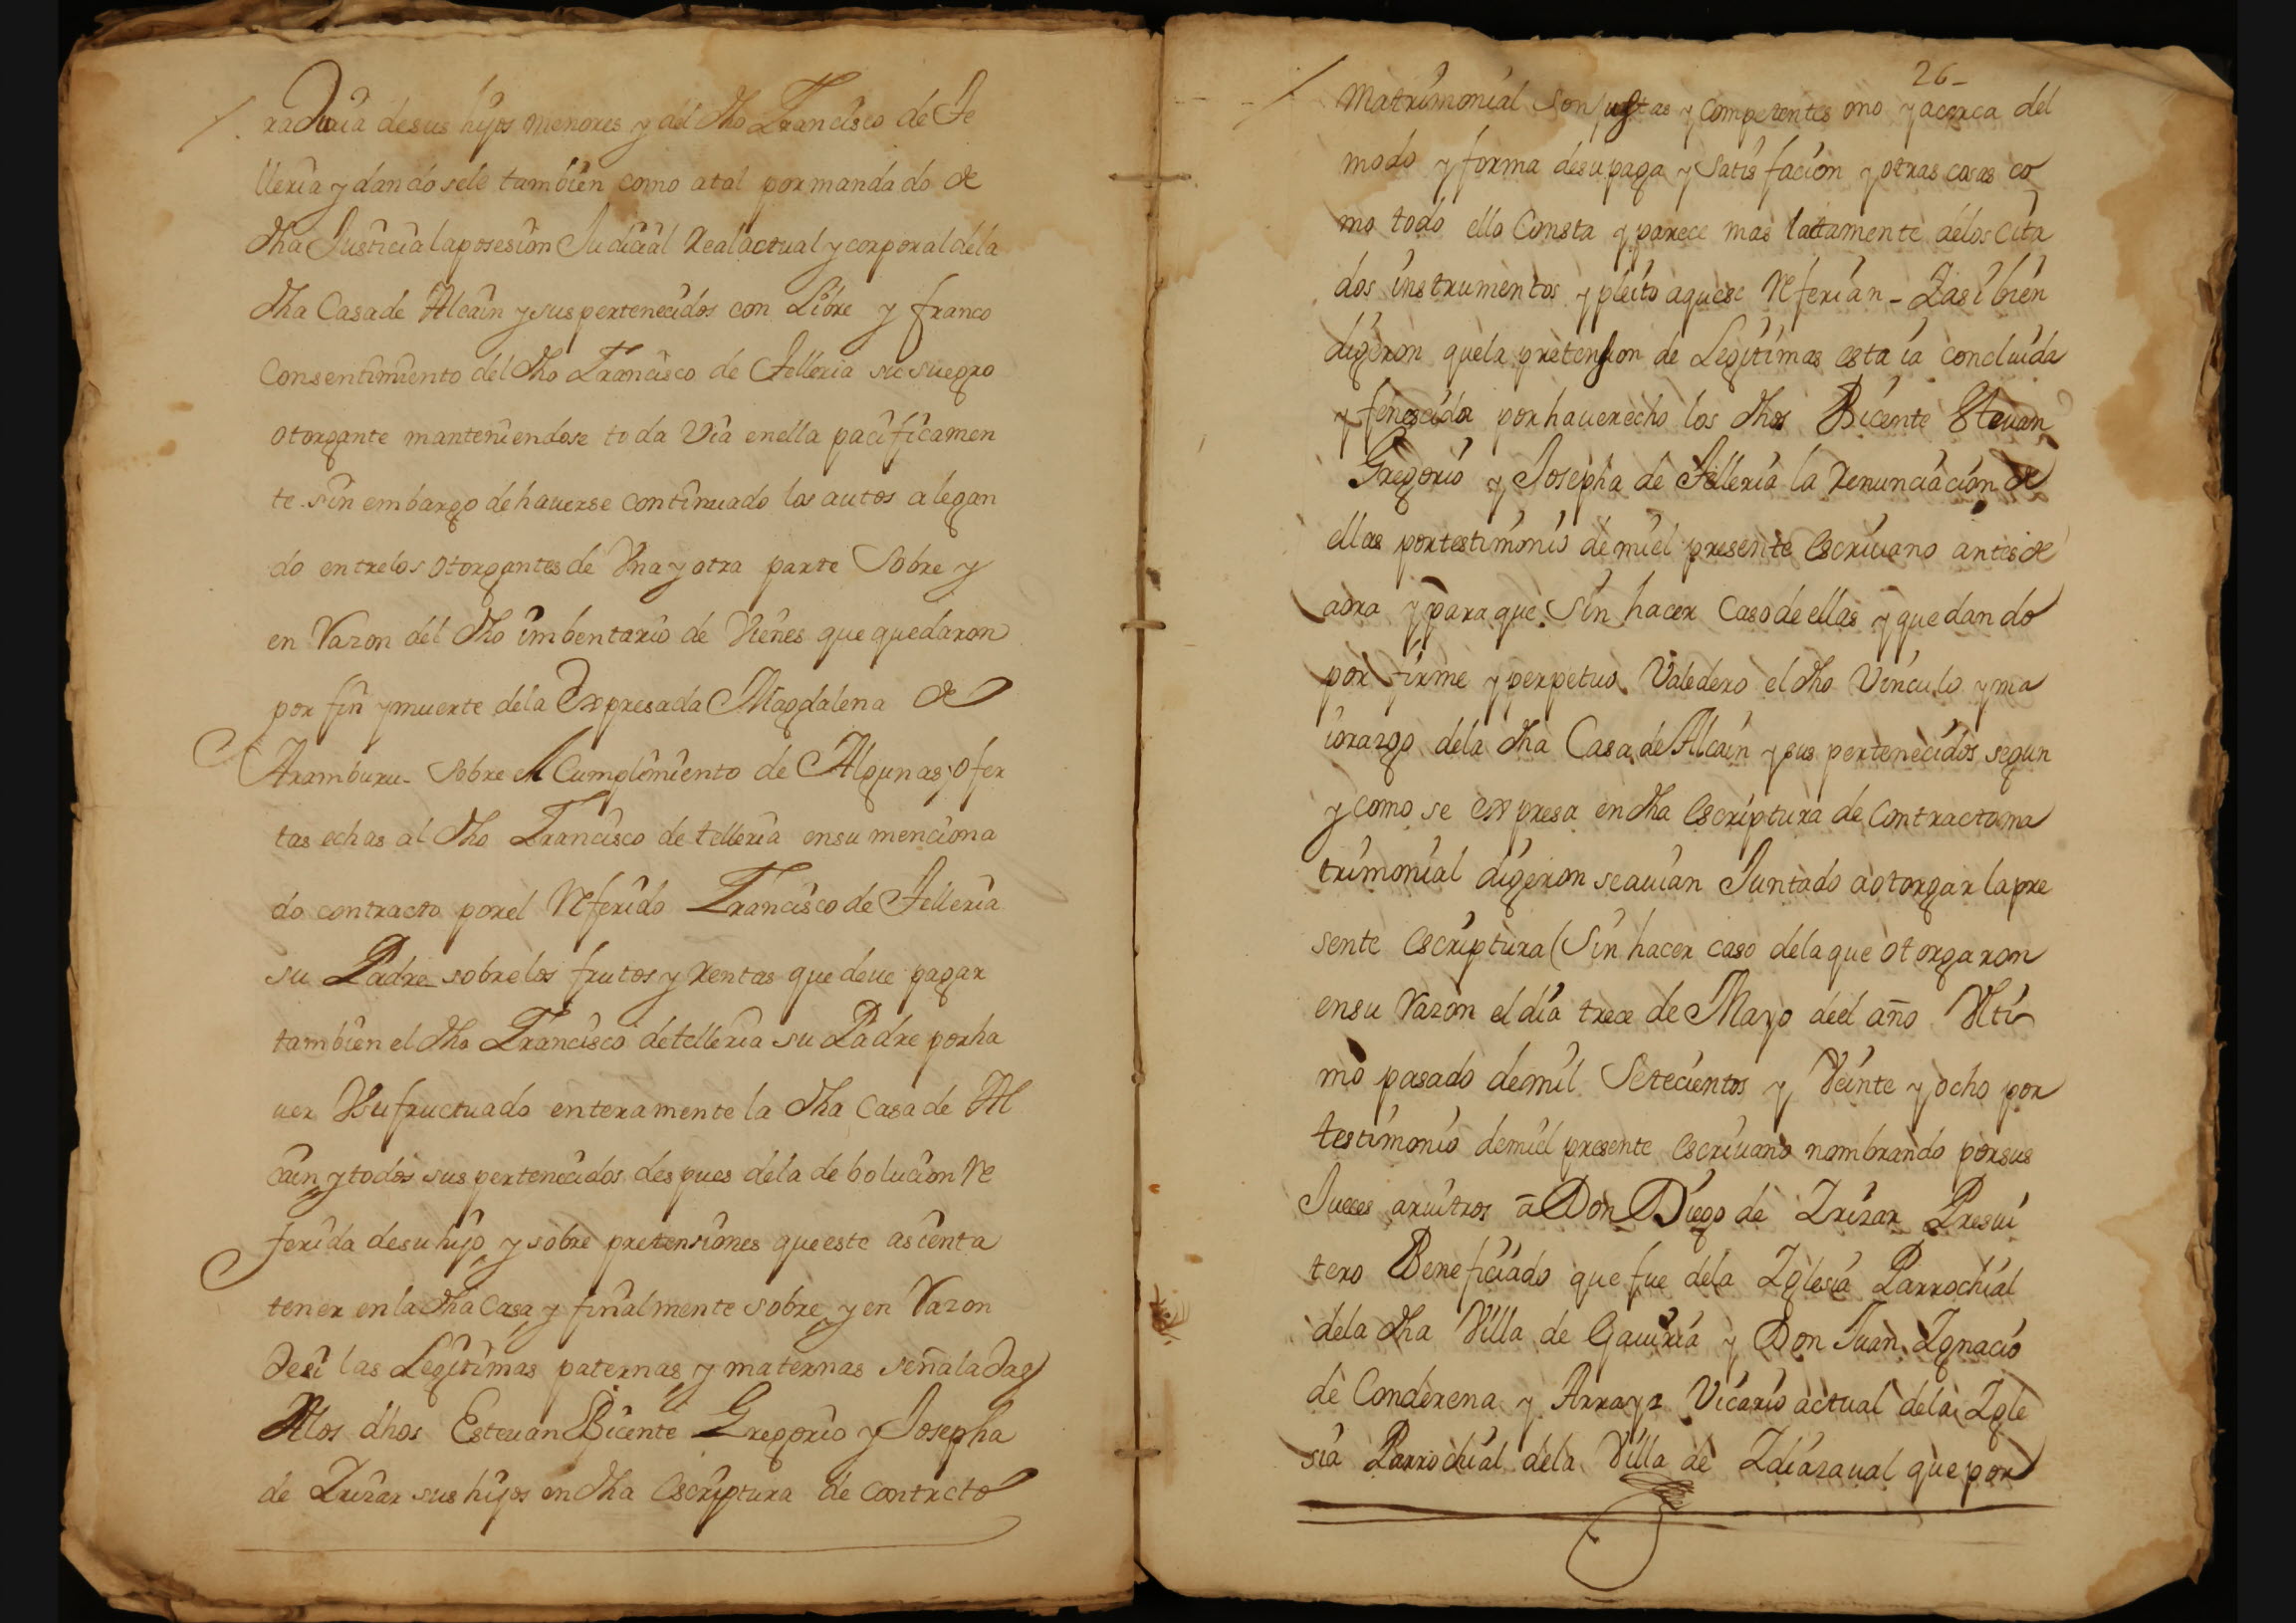 raduria de sus hijos menores y del dho Francisco de Te
lleria y dandosele tambien como atal por mandado de
dha Justicia la posesion Judicial Real actual y corporal de la
dha Casa de Alcain y sus pertenecidos con Libre y franco
Consentimiento del dho Francisco de Telleria su suegro
otorgante manteniendose toda Via en ella pacificamen
te sin embargo de hauerse continuado los autos alegan
do entre los otorgantes de Vna y otra parte Sobre y
en Razon del dho imbentario de Vienes que quedaron
por fin y muerte dela Expresada Magdalena de
Aramburu - Sobre el Cumplimiento de Algunas ofer
tas echas al dho Francisco de telleria en su menciona
do contracto por el Referido Francisco de Telleria
su Padre sobre los frutos y Rentas que deue pagar
tambien el dho Francisco de telleria su Padre por ha
uer Vsufructuado enteramente la dha Casa de Al
cain y todos sus pertenecidos despues dela debolucion Re
ferida de su hijo y sobre pretensiones que este asienta
tener en la dha Casa y finalmente sobre y en Razon
de si las Legitimas paternas y maternas señaladas
Alos dhos Esteuan Bicente Gregorio y Josepha
de Irizar sus hijos en dha Escriptura de contrcto
26-
Matrimonial son justas y competentes o no y acerca del
modo y forma de su paga y satisfacion y otras cosas co
mo todo ello Consta y parece mas lattamente delos cita
dos instrumentos y pleito aquese Referian - Iasi bien
digeron que la pretension de Legitimas esta ia concluida
y fenescida por hauer echo los dhos Bicente Steuan
Gregorio y Josepha de Telleria la Renunciacion de
ellas por testimonio de mi el presente escriuano antes de
aora y para que sin hacer Caso de ellas y quedando
por firme y perpetuo Valedero el dho Vinculo y ma
iorazgo dela dha Casa de Alcain y sus pertenecidos segun
y como se expresa en dha escriptura de Contracto ma
trimonial digeron se auian Juntado a otorgar la pre
sente escriptura (Sin hacer caso dela que otorgaron
en su Razon el dia trece de Mayo de el año Vlti
mo pasado de mil Setecientos y Veinte y ocho por
testimonio de mi el presente escriuano nombrando por sus
Jueces aruitros a Don Diego de Irizar Presui
tero Beneficiado que fue dela Iglesia Parrochial
dela dha Villa de Gauiria y Don Juan Ignacio
de Conderena y Arraya Vicario actual dela Igle
sia Parrochial dela Villa de Idiazaual que por